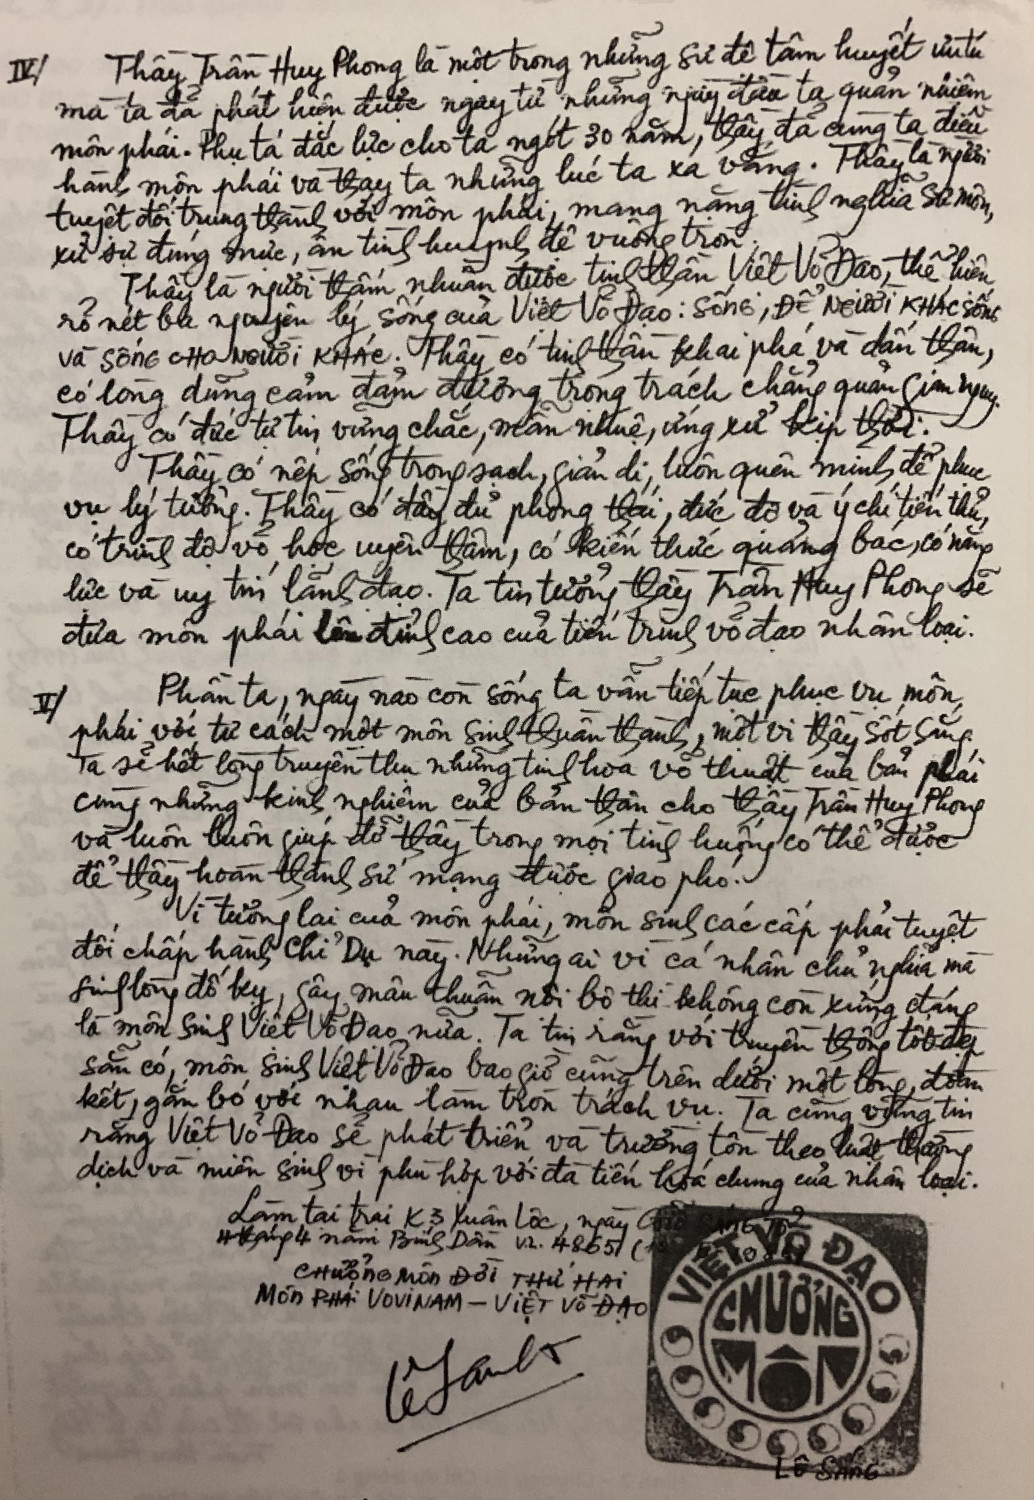 IV/ Thầy Trần Huy Phong là một trong những sư đệ tâm huyết ưu tú
mà ta đã phát hiện được ngay từ những ngày đầu ta quản nhiệm
môn phái. Phụ tá đắc lực cho ta ngót 30 năm, thầy đã cùng ta điều
hành môn phái và thay ta những lúc ta xa vắng. Thầy là người
tuyệt đối trung thành với môn phái, mang nặng tình nghĩa sư môn,
xử sự đúng mức, ân tình huynh đệ vuông tròn.
Thầy là người thấm nhuần được tinh thần Việt Võ Đạo, thể hiện
rõ nét ba nguyên lý sống của Việt Võ Đạo: SỐNG, ĐỂ NGƯỜI KHÁC SỐNG
VÀ SỐNG CHO NGƯỜI KHÁC. Thầy có tinh thần khai phá và dấn thân,
có lòng dũng cảm đảm đương trọng trách chẳng quản gian nguy.
Thầy có đức tự tin vững chắc, mẫn nhuệ, ứng xử kịp thời.
Thầy có nếp sống trong sạch, giản dị, luôn quên mình để phục
vụ lý tưởng. Thầy có đầy đủ phong thái, đức độ và ý chí tiến thủ,
có trình độ võ học uyên thâm, có kiến thức quảng bác, có năng
lực và uy tín lãnh đạo. Ta tin tưởng thầy Trần Huy Phong sẽ
đưa môn phái lên đỉnh cao của tiến trình võ đạo nhân loại.
V/ Phần ta, ngày nào còn sống ta vẫn tiếp tục phục vụ môn
phái với tư cách một môn sinh thuần thành, một vị thầy sốt sắng.
Ta sẽ hết lòng truyền thụ những tinh hoa võ thuật của bản phái
cùng những kinh nghiệm của bản thân cho thầy Trần Huy Phong
và luôn luôn giúp đỡ thầy trong mọi tình huống có thể được
để thầy hoàn thành sứ mạng được giao phó.
Vì tương lai của môn phái, môn sinh các cấp phải tuyệt
đối chấp hành Chỉ Dụ này. Những ai vì cá nhân chủ nghĩa mà
sinh lòng đố kỵ, gây mâu thuẫn nội bộ thì không còn xứng đáng
là môn sinh Việt Võ Đạo nữa. Ta tin rằng với truyền thống tốt đẹp
sẵn có, môn sinh Việt Võ Đạo bao giờ cũng trên dưới một lòng, đoàn
kết, gắn bó với nhau làm tròn trách vụ. Ta cũng vững tin
rằng Việt Võ Đạo sẽ phát triển và trường tồn theo luật thường
dịch và miên sinh vì phù hợp với đà tiến hoá chung của nhân loại.
Làm tại trại K3 Xuân Lộc, ngày Giỗ SÁNG TỔ
4 tháng 4 năm Bính Dần VL. 4865
CHƯỞNG MÔN ĐỜI THỨ HAI
MÔN PHÁI VOVINAM – VIỆT VÕ ĐẠO
VIỆT VÕ ĐẠO
CHƯỞNG
MÔN
LÊ SÁNG